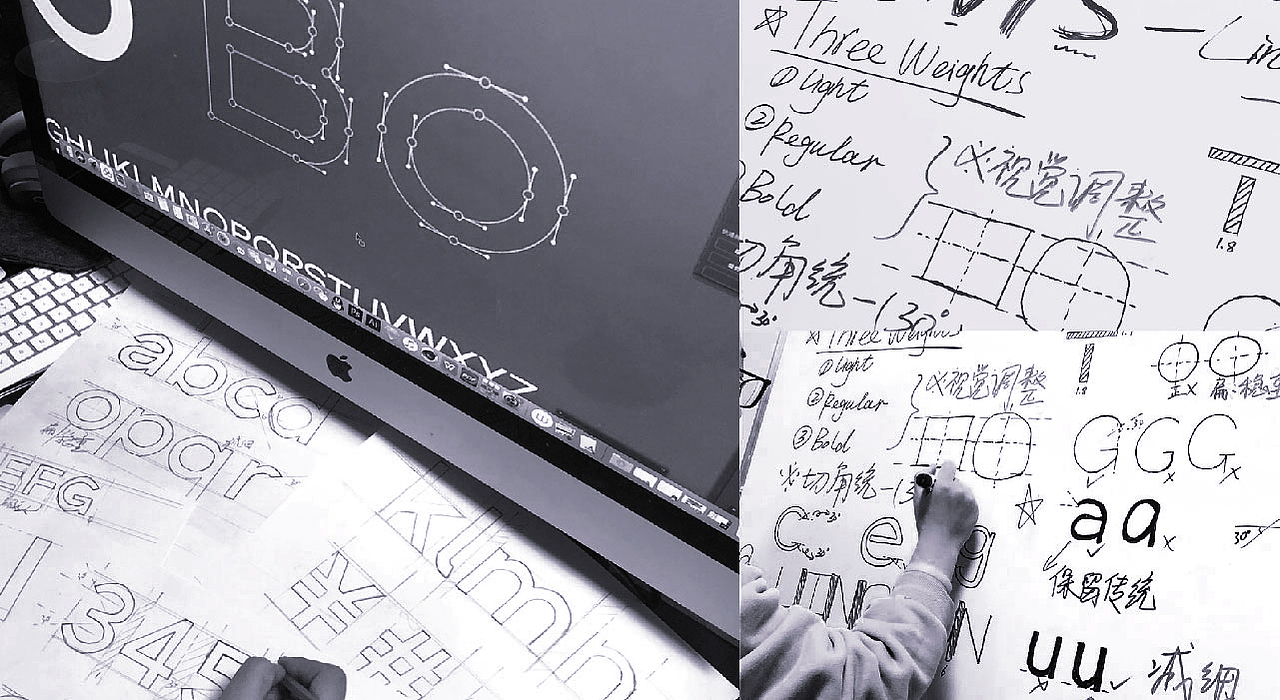 B O
GHIJKLMNOPQRSTUVWXYZ
abcd
opqr
EFG
klmn
345
¥
##
☆ Three Weights
① Light
② Regular
Bold
※视觉调整
切角统一(30°
1.8
Three Weights
① Light
② Regular
③ Bold
※视觉调整
※切角统一(3
1.8
正x
C e g
G G G x
30°
a a x
保留传统
u u
减细